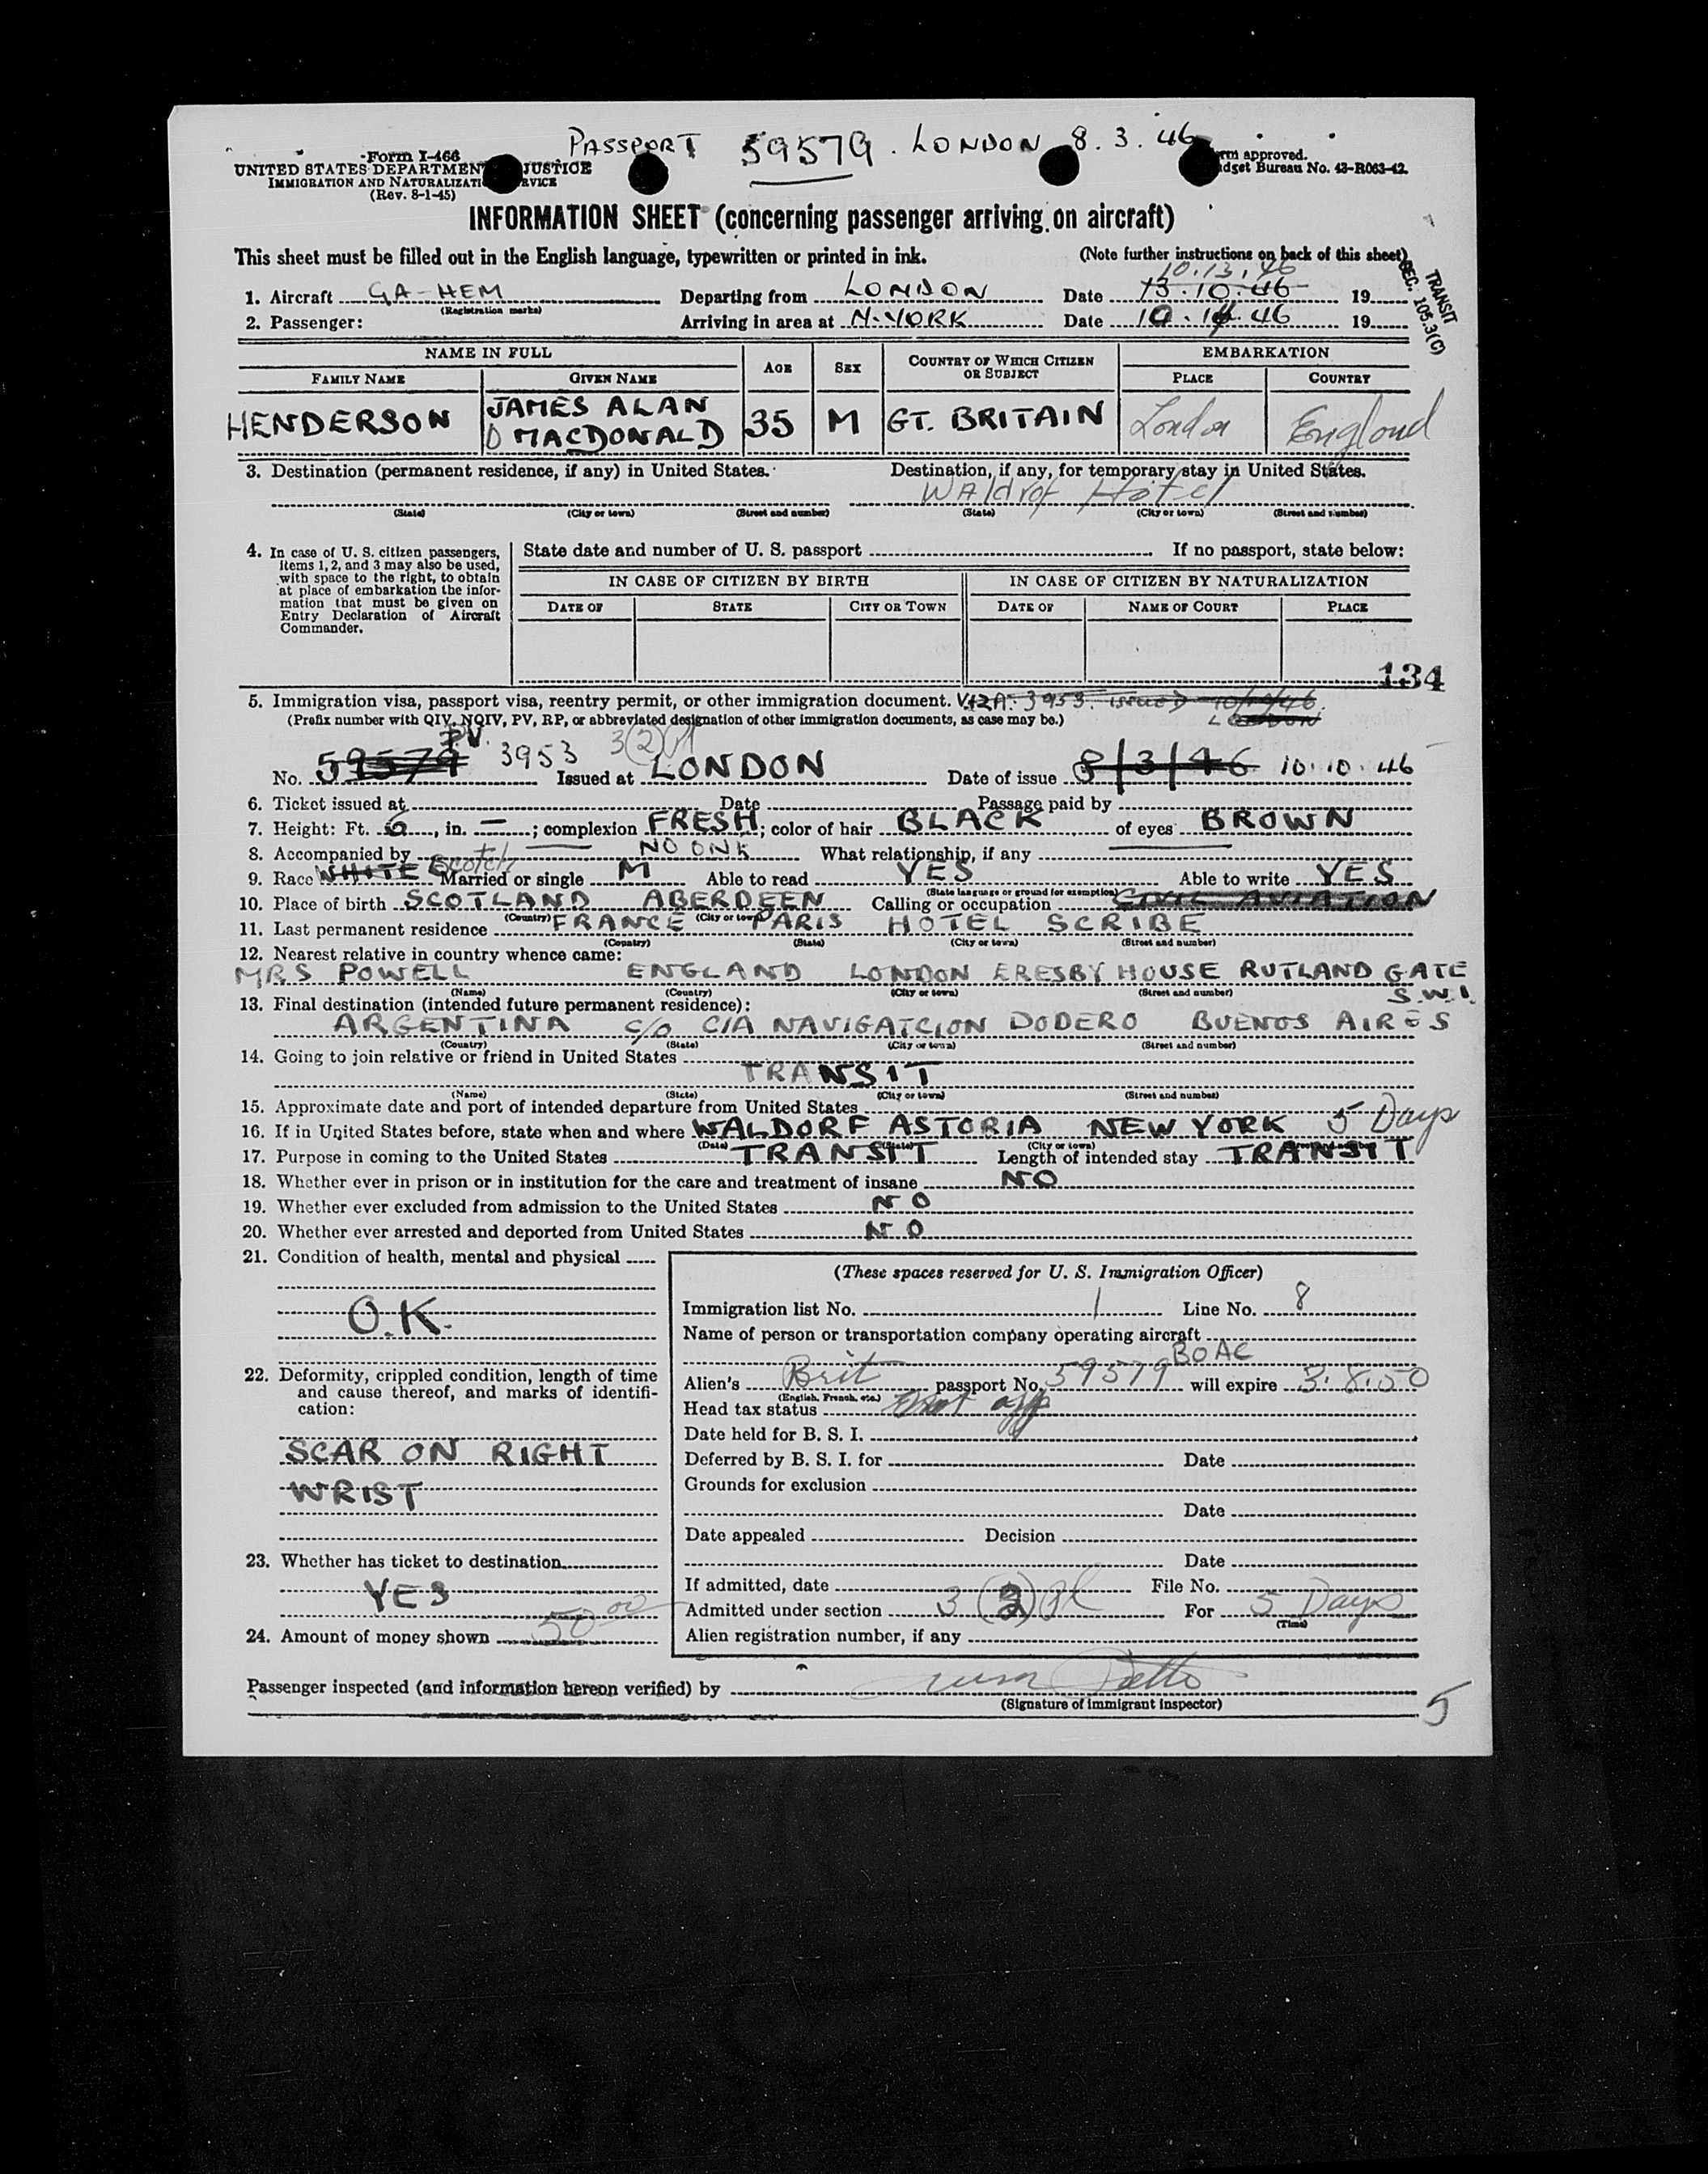 PASSPORT 59579. LONDON 8.3.46
Form I-466
UNITED STATES DEPARTMENT JUSTICE
IMMIGRATION AND NATURALIZATI RVICE
(Rev. 8-1-45)
rm approved.
dget Bureau No. 43-R063-42.
INFORMATION SHEET (concerning passenger arriving on aircraft)
This sheet must be filled out in the English language, typewritten or printed in ink. (Note further instructions on back of this sheet)
TRANSIT
SEC. 105.3(C)
10.13.46
1. Aircraft GA-HEM Departing from LONDON Date 13.10.46 19
(Registration marks)
2. Passenger: Arriving in area at N.YORK Date 10.14.46 19
NAME IN FULL AGE SEX COUNTRY OF WHICH CITIZEN OR SUBJECT EMBARKATION
FAMILY NAME GIVEN NAME PLACE COUNTRY
HENDERSON JAMES ALAN D MACDONALD 35 M GT. BRITAIN London England
3. Destination (permanent residence, if any) in United States. Destination, if any, for temporary stay in United States.
Waldrof Hotel
(State) (City or town) (Street and number) (State) (City or town) (Street and number)
4. In case of U. S. citizen passengers, items 1, 2, and 3 may also be used, with space to the right, to obtain at place of embarkation the information that must be given on Entry Declaration of Aircraft Commander.
State date and number of U. S. passport If no passport, state below:
IN CASE OF CITIZEN BY BIRTH IN CASE OF CITIZEN BY NATURALIZATION
DATE OF STATE CITY OR TOWN DATE OF NAME OF COURT PLACE
134
5. Immigration visa, passport visa, reentry permit, or other immigration document. VIZA: 3953 ISSUED 10/10/46
(Prefix number with QIV, NQIV, PV, RP, or abbreviated designation of other immigration documents, as case may be.) LONDON
PV 3(2)
No. 59579 3953 Issued at LONDON Date of issue 8/3/46 10.10.46
6. Ticket issued at Date Passage paid by
7. Height: Ft. 6, in. —; complexion FRESH; color of hair BLACK of eyes BROWN
8. Accompanied by NO ONE What relationship, if any
9. Race WHITE Scotch Married or single M Able to read YES Able to write YES
(State language or ground for exemption)
10. Place of birth SCOTLAND ABERDEEN Calling or occupation CIVIL AVIATION
(Country) (City or town)
11. Last permanent residence FRANCE PARIS HOTEL SCRIBE
(Country) (State) (City or town) (Street and number)
12. Nearest relative in country whence came:
MRS POWELL ENGLAND LONDON ERESBY HOUSE RUTLAND GATE S.W.1.
(Name) (Country) (City or town) (Street and number)
13. Final destination (intended future permanent residence):
ARGENTINA c/o CIA NAVIGATCION DODERO BUENOS AIRES
(Country) (State) (City or town) (Street and number)
14. Going to join relative or friend in United States
TRANSIT
(Name) (State) (City or town) (Street and number)
15. Approximate date and port of intended departure from United States
16. If in United States before, state when and where WALDORF ASTORIA NEW YORK 5 Days
(Date) (State) (City or town) (Street and number)
17. Purpose in coming to the United States TRANSIT Length of intended stay TRANSIT
18. Whether ever in prison or in institution for the care and treatment of insane NO
19. Whether ever excluded from admission to the United States NO
20. Whether ever arrested and deported from United States NO
21. Condition of health, mental and physical
O.K.
22. Deformity, crippled condition, length of time and cause thereof, and marks of identification:
SCAR ON RIGHT
WRIST
23. Whether has ticket to destination
YES
24. Amount of money shown 50 00
(These spaces reserved for U. S. Immigration Officer)
Immigration list No. 1 Line No. 8
Name of person or transportation company operating aircraft
BOAC
Alien's Brit passport No. 59579 will expire 3.8.50
(English, French, etc.)
Head tax status
Date held for B. S. I.
Deferred by B. S. I. for Date
Grounds for exclusion
Date
Date appealed Decision
Date
If admitted, date File No.
Admitted under section 3 (3) For 5 Days
(Time)
Alien registration number, if any
Passenger inspected (and information hereon verified) by
(Signature of immigrant inspector)
5